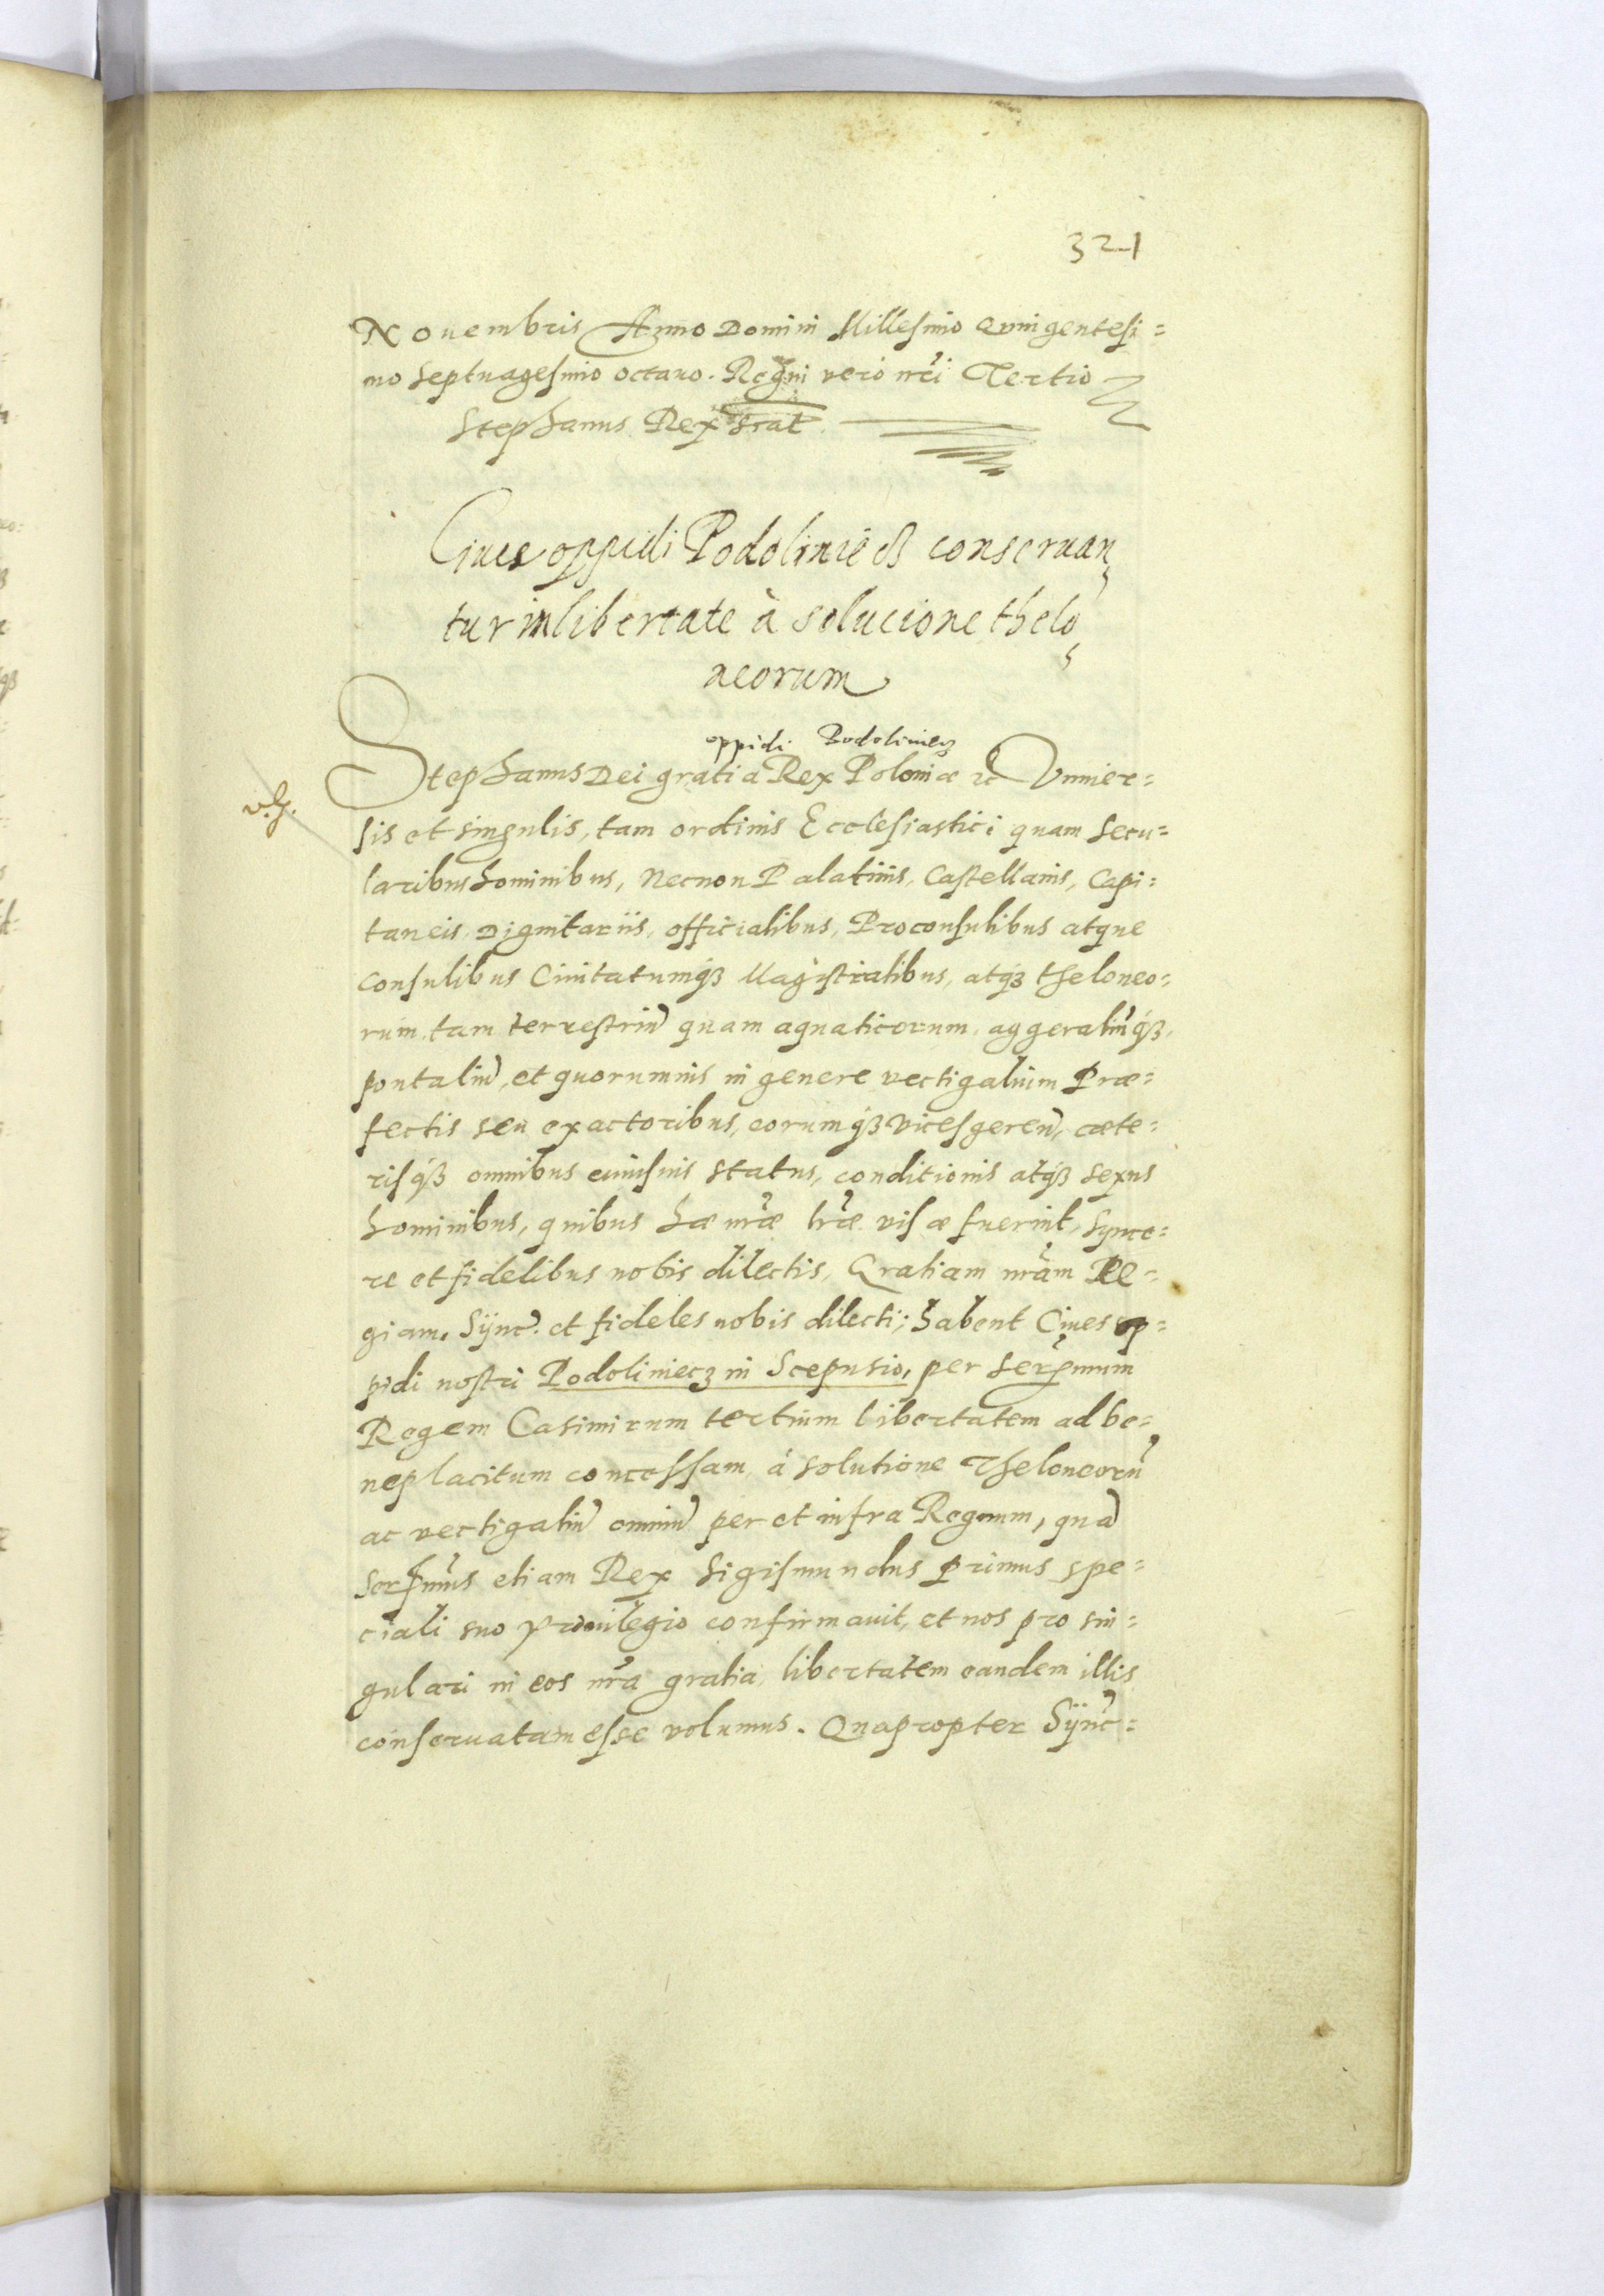 321
Nouembris Anno Domini Millesimo Quingentesi=
mo Septuagesimo octauo. Regni vero nr̃i Tertio
Stephanus Rex sr̃at.
Ciues oppidi Podoliniecz conseruan
tur in libertate à solucione thelo
neorum
oppidi Podoliniecz
Stephanus Dei gratia Rex Poloniæ &c Vniuer=
v. g.
sis et singulis, tam ordinis Ecclesiastici quam secu=
laribus hominibus, Necnon Palatinis, Castellanis, Capi=
taneis, Dignitariis, officialibus, Proconsulibus atque
Consulibus Ciuitatumqꝫ Magistratibus, atqꝫ theloneo=
rum, tam terrestriũ quam aquaticorum, aggeraliũqꝫ,
pontaliũ, et quorumuis in genere vectigalium Præ=
fectis seu exactoribus, eorumqꝫ vicesgereñ, cæte=
risqꝫ omnibus cuiusuis status, conditionis atqꝫ sexus
hominibus, quibus hæ nr̃æ lr̃æ visæ fuerint, Synce=
re et fidelibus nobis dilectis, Gratiam nr̃am Re=
giam. Sÿnc̃. et fideles nobis dilecti; Habent Ciues op=
pidi nostri Podoliniecz in Scepusio, per Serꝫmum
Regem Casimirum tertium libertatem ad be=
neplacitum concessam, à solutione Theloneorũ
ac vectigaliũ omniũ per et infra Regnum, quã
Serꝫmus etiam Rex Sigismundus primus spe=
ciali suo priuilegio confirmauit, et nos pro sin=
gulari in eos nr̃a gratia, libertatem eandem illis
conseruatam esse volumus. Quapropter Sÿnc̃=